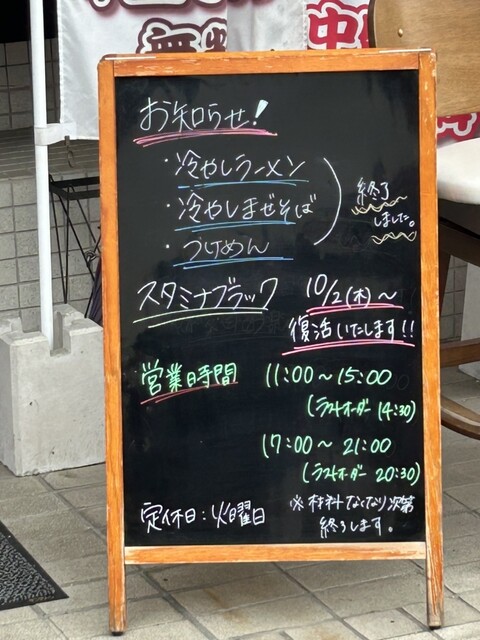 無料
中
お知らせ!
・冷やしラーメン
・冷やしまぜそば
・つけめん
終了
しました。
スタミナブラック 10/2(木)~
復活いたします!!
営業時間 11:00~15:00
(ラストオーダー 14:30)
17:00~21:00
(ラストオーダー 20:30)
定休日:火曜日
※材料なくなり次第
終了します。